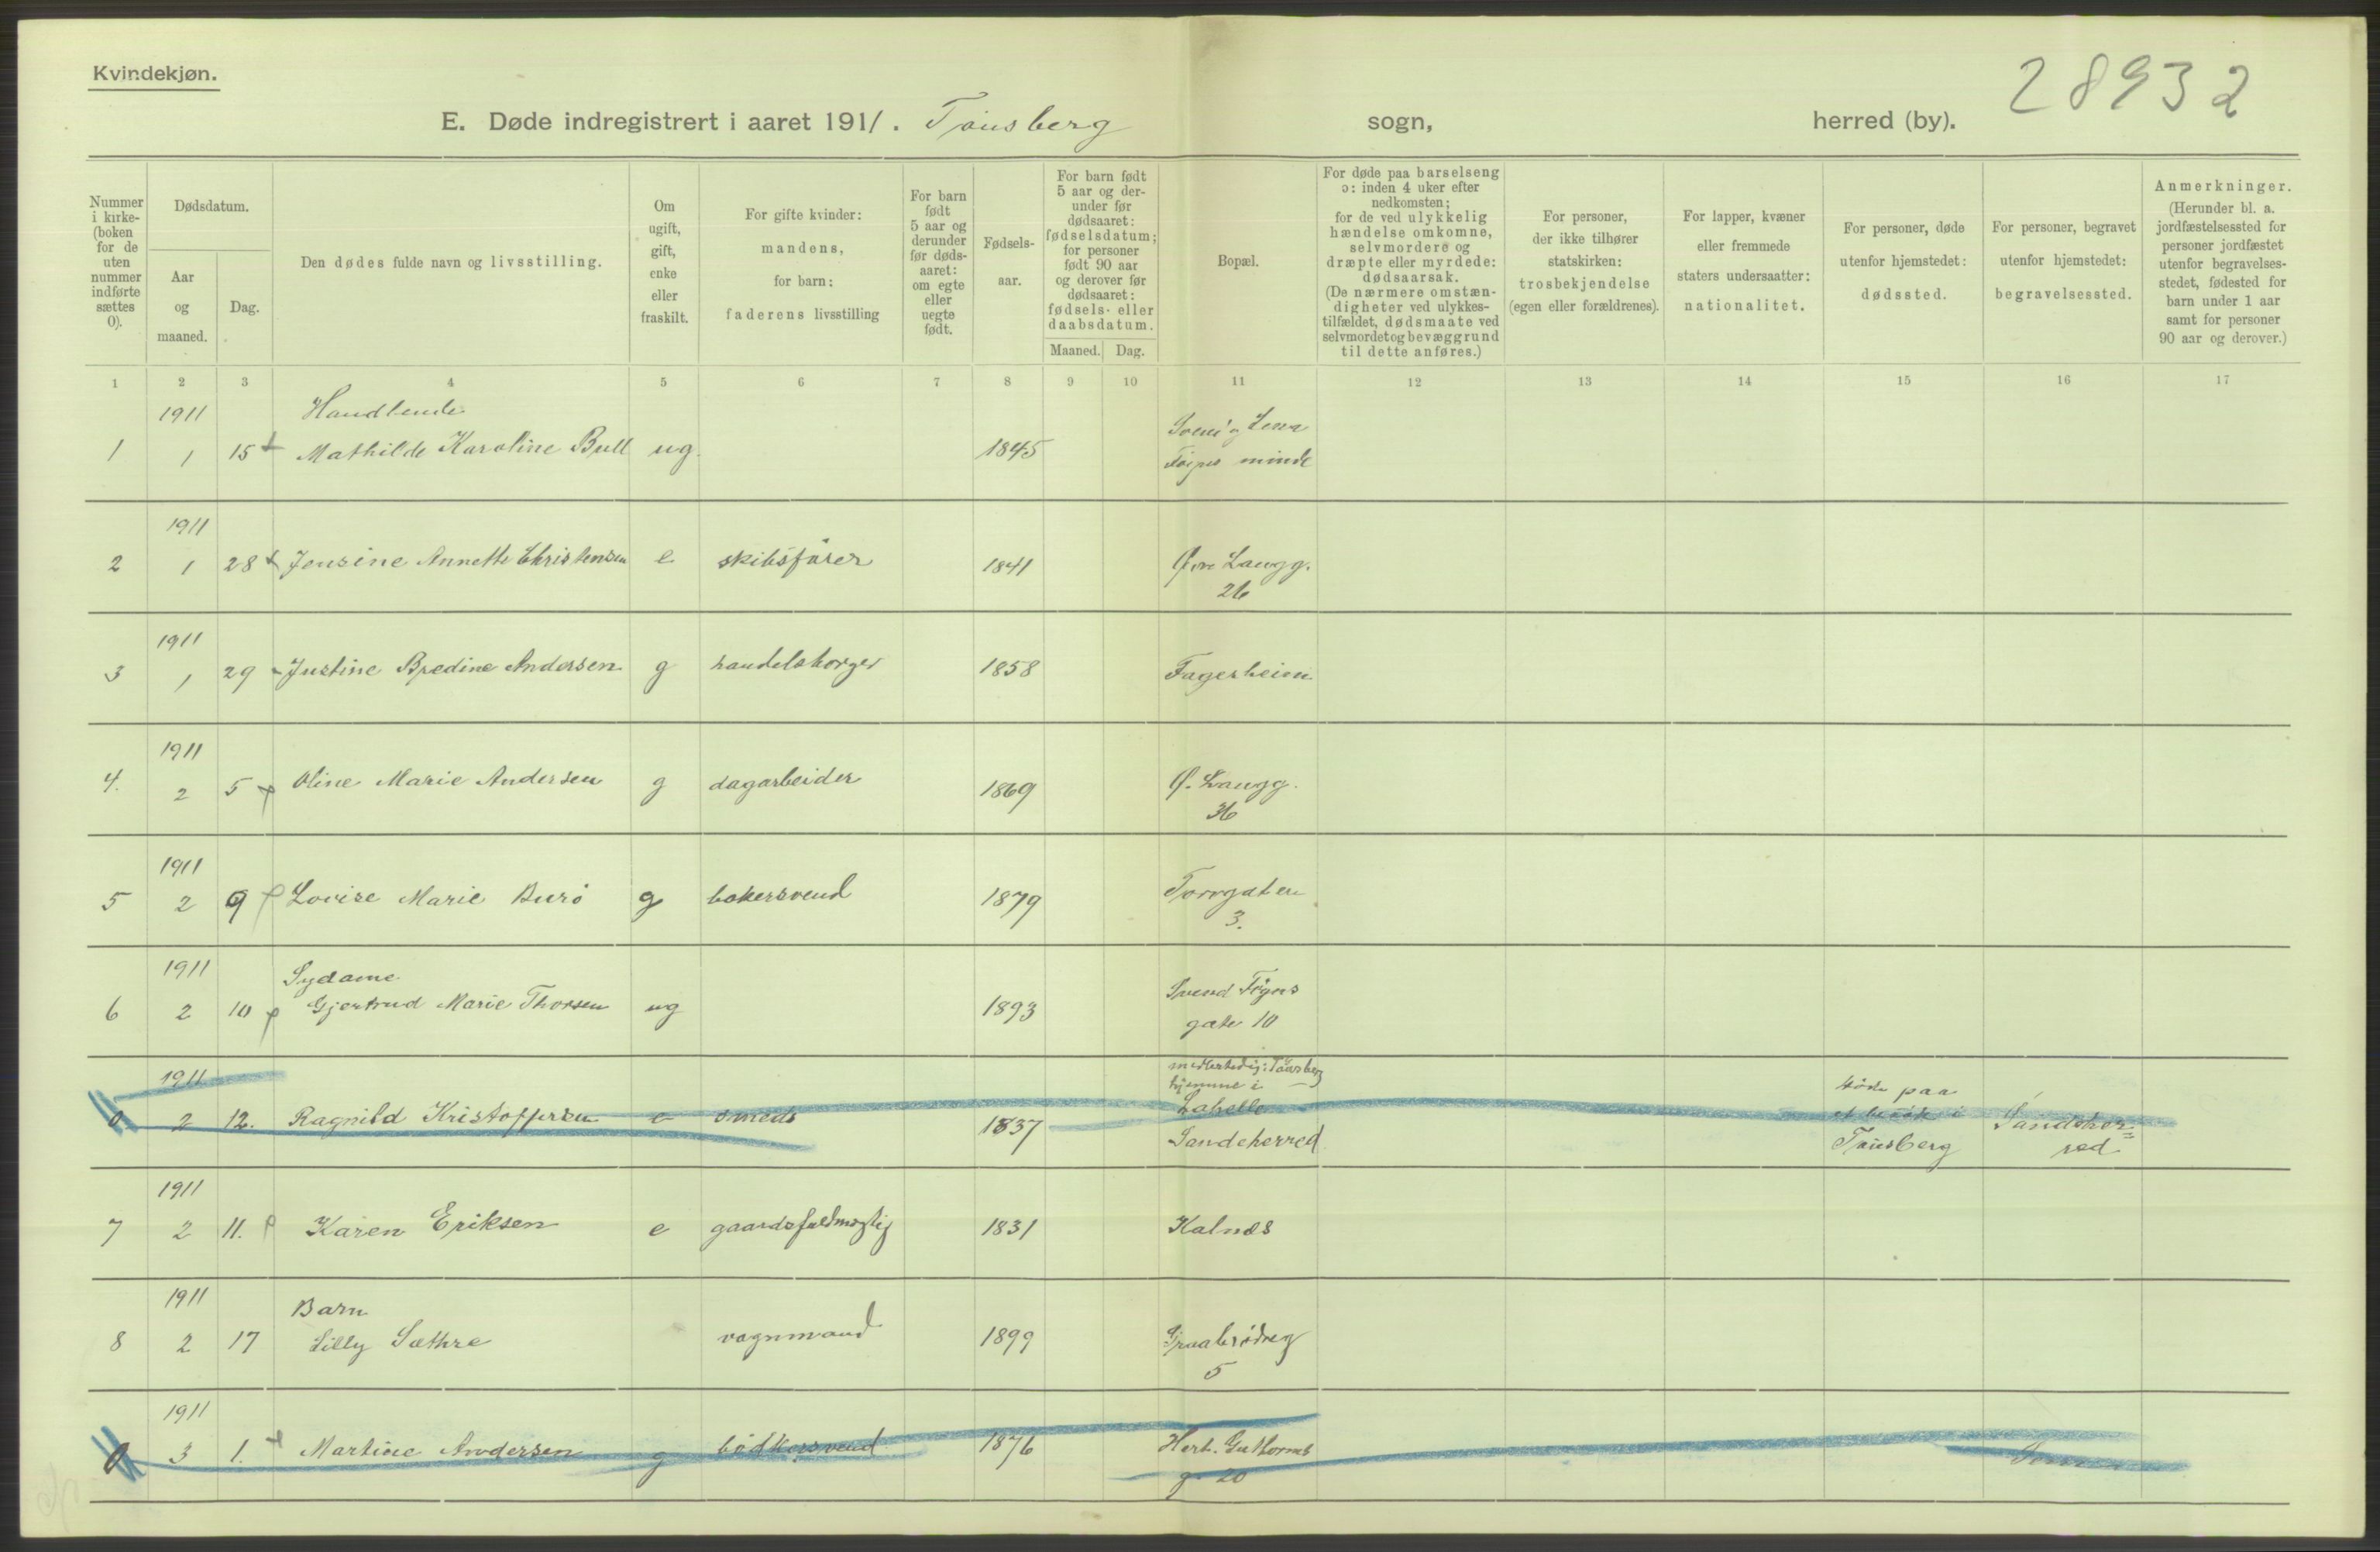 Kvindekjøn.
28932
E. Døde indregistrert i aaret 1911. Tönsberg sogn, herred (by).
Nummer i kirke- (boken for de uten nummer indførte sættes 0).
Dødsdatum.
Aar og maaned.
Dag.
Den dødes fulde navn og livsstilling.
Om ugift, gift, enke eller fraskilt.
For gifte kvinder: mandens, for barn: faderens livsstilling
For barn født 5 aar og derunder før døds- aaret: om egte eller uegte født.
Fødsels- aar.
For barn født 5 aar og der- under før dødsaaret: fødselsdatum; for personer født 90 aar og derover før dødsaaret: fødsels- eller daabsdatum.
Maaned. Dag.
Bopæl.
For døde paa barselseng ɔ: inden 4 uker efter nedkomsten; for de ved ulykkelig hændelse omkomne, selvmordere og dræpte eller myrdede: dødsaarsak. (De nærmere omstæn- digheter ved ulykkes- tilfældet, dødsmaate ved selvmord et og bevæggrund til dette anføres.)
For personer, der ikke tilhører statskirken: trosbekjendelse (egen eller forældrenes).
For lapper, kvæner eller fremmede staters undersaatter: nationalitet.
For personer, døde utenfor hjemstedet: dødssted.
For personer, begravet utenfor hjemstedet: begravelsessted.
Anmerkninger. (Herunder bl. a. jordfæstelsessted for personer jordfæstet utenfor begravelses- stedet, fødested for barn under 1 aar samt for personer 90 aar og derover.)
1 2 3 4 5 6 7 8 9 10 11 12 13 14 15 16 17
1911 Handlende
1 1 15 Mathilde Karoline Bull ug. 1845
Föyns minde
1911
2 1 28 Jensine Annette Christensen e skibsförer 1841 Øvre Langg.
26
1911
3 1 29 Justine Bredine Andersen g handelsborger 1858 Fagerheim
1911
4. 2 5 Oline Marie Andersen g dagarbeider 1869 Ø. Langg.
36
1911
5 2 9 Lovise Marie Burö g bakersvend 1879 Torvgaten
3.
1911 Sydame
6 2 10 Gjertrud Marie Thorsen ug 1893 Svend Föyns
gate 10
1911 midlertidig: Tönsberg
hjemme i
0 2 12. Ragnild Kristoffersen e smeds 1837 Sandeherred
döde paa
et besök i
Tönsberg
Sandeher=
red
1911
7 2 11. Karen Eriksen e gaardsfuldmægtig 1831 Kalnæs
1911 Barn
8 2 17 Lilly Sæthre vognmand 1899 Graabrödreg
5
1911
0 3 1. Martine Andersen g bödkersvend 1876 Hert. Guthorms
g. 20